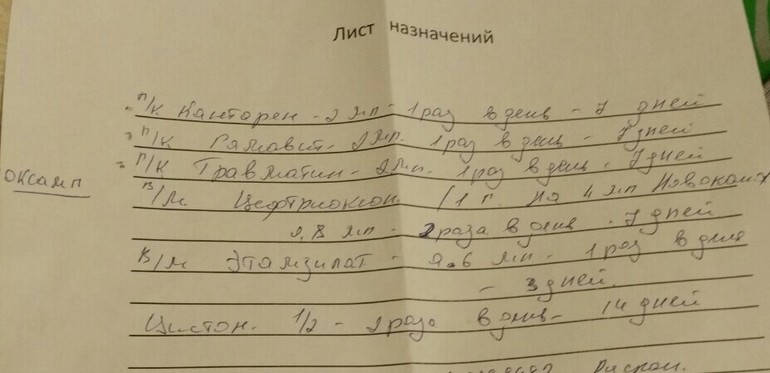 Лист назначений
- п/к Кантарен - 2 мл - 1 раз в день - 7 дней
- п/к Гамавит - 2 мл. 1 раз в день - 7 дней
- п/к Травматин - 2 мл. 1 раз в день - 7 дней
оксамп
в/м Цефтриоксон. (1 г. на 4 мл Новокаин
0,8 мл - 2 раза в день - 7 дней
в/м Этамзилат - 0.6 мл - 1 раз в день
- 3 дней.
Цистон. 1/2 - 2 раза в день - 14 дней